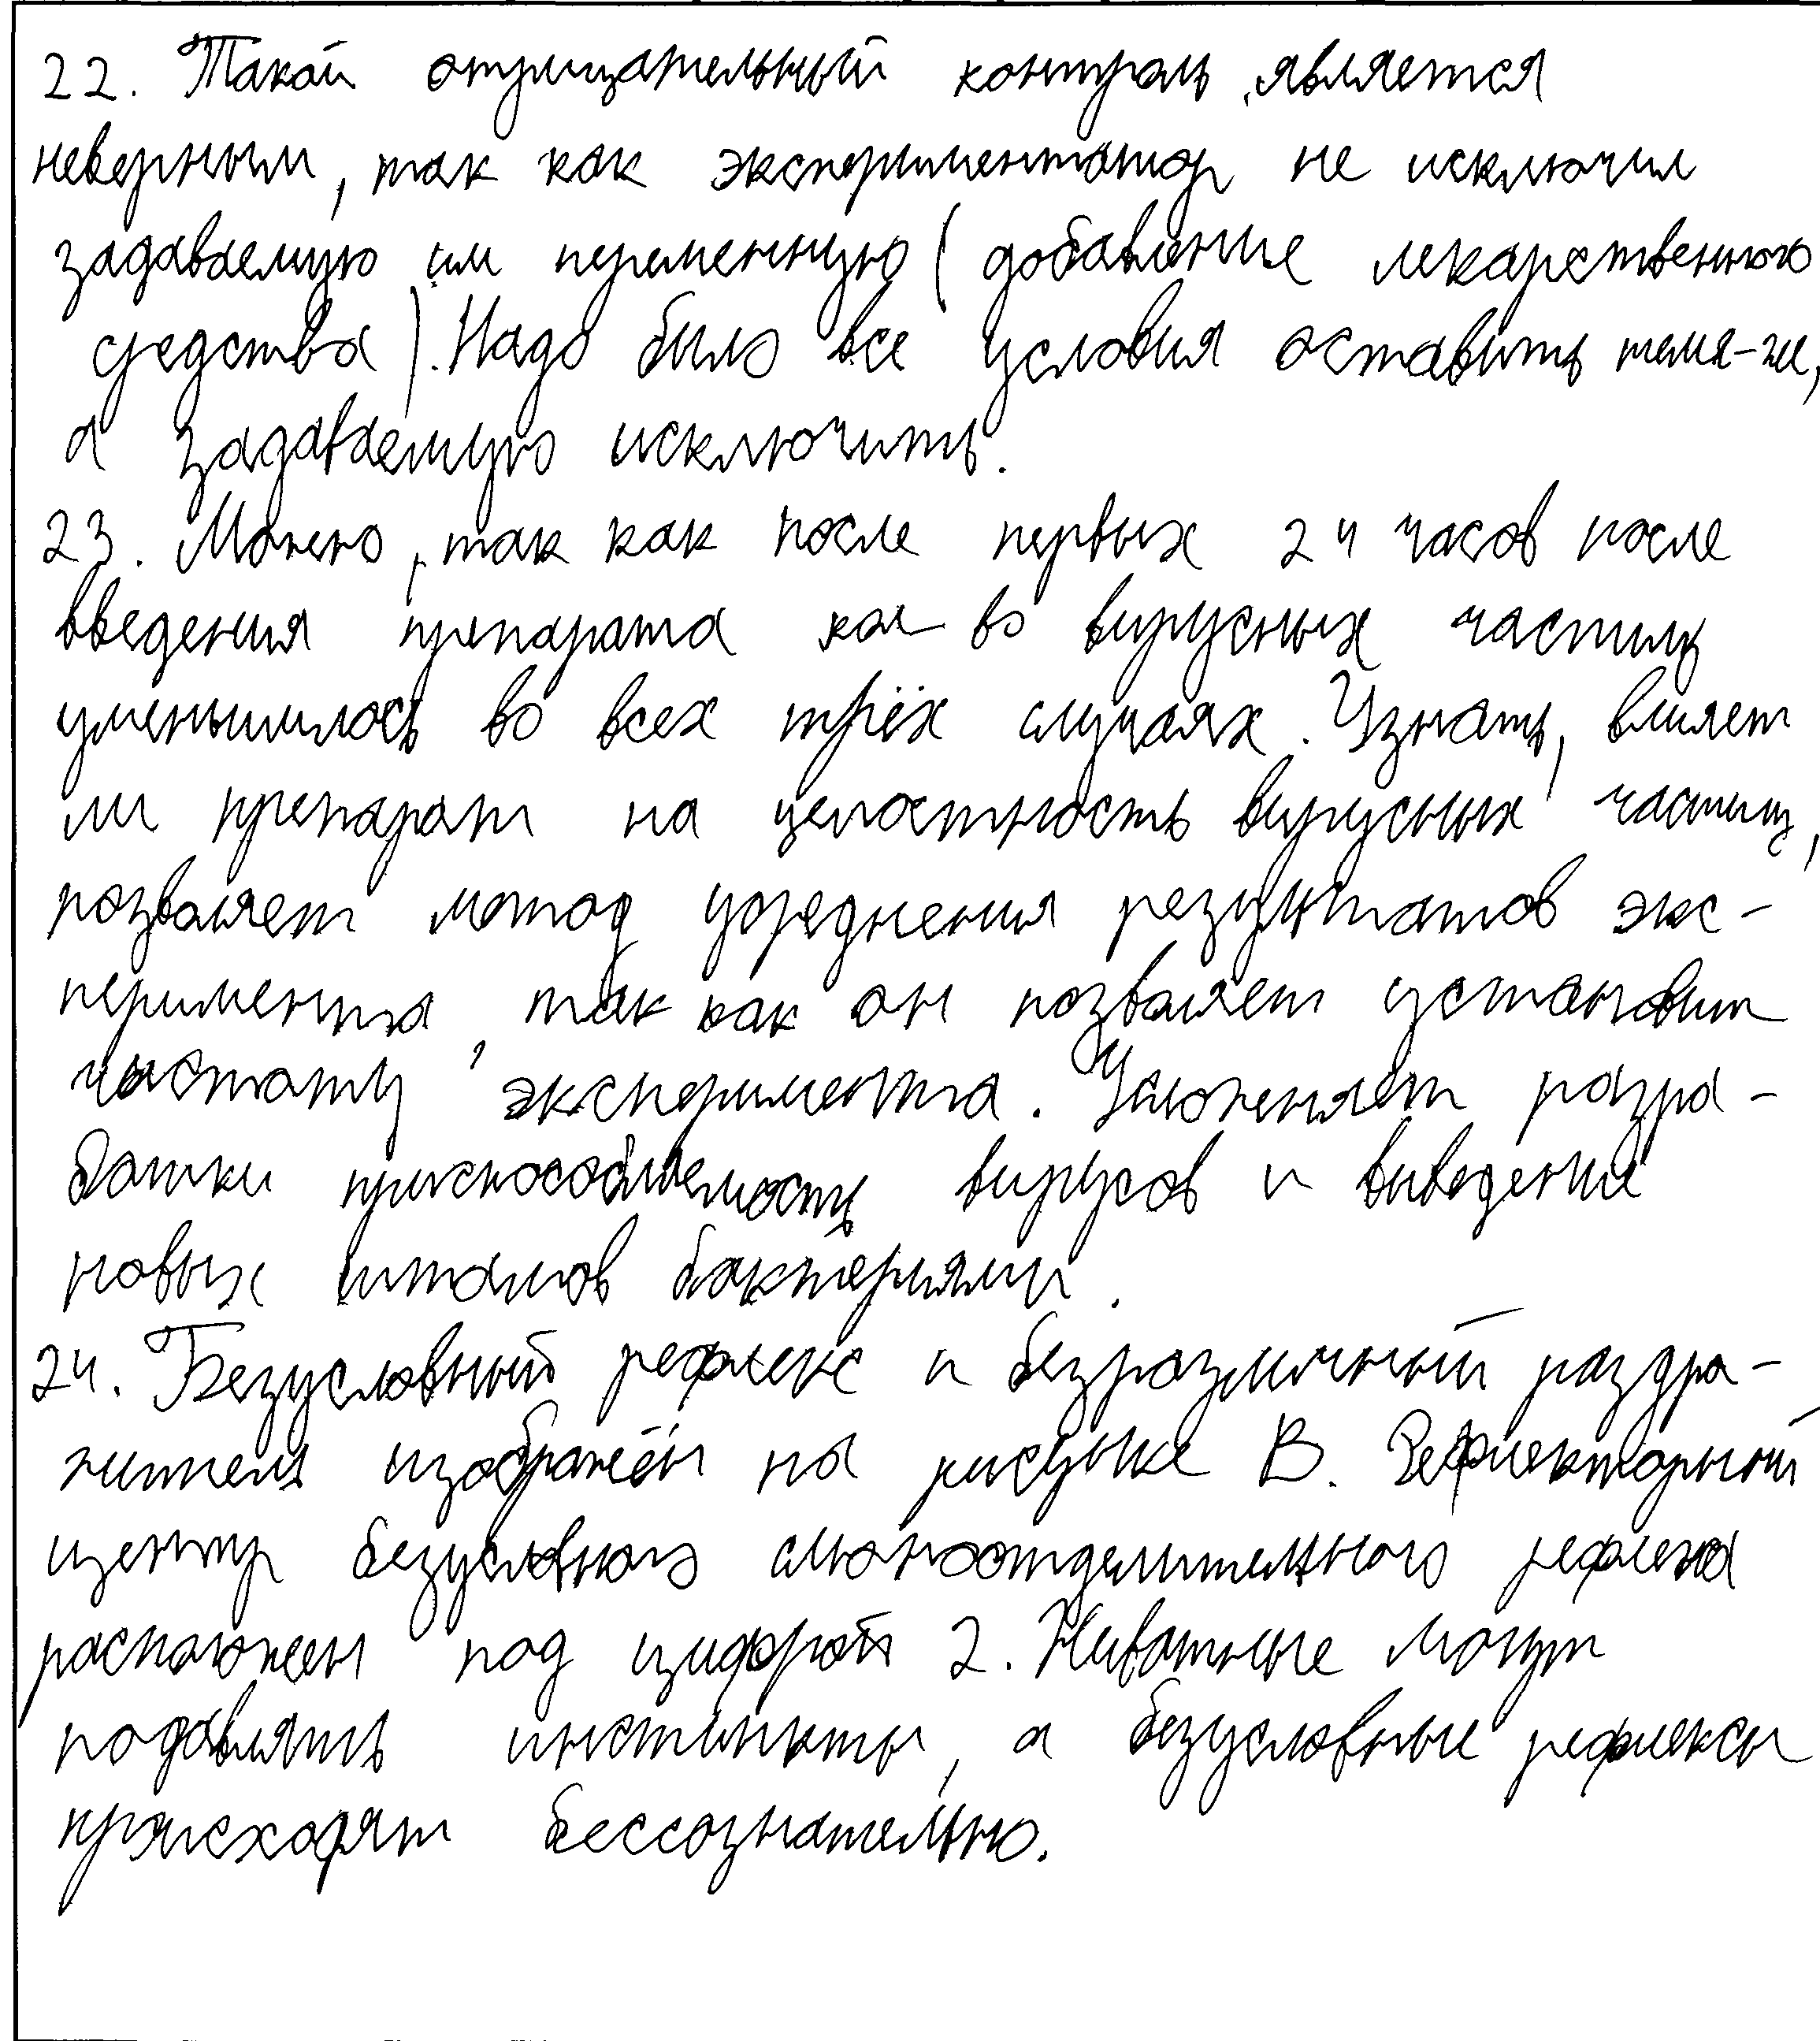 22. Такой отрицательный контроль является
неверным, так как экспериментатор не исключил
задаваемую им переменную (добавление лекарственного
средства). Надо было все условия оставить теми-же,
а задаваемую исключить.
23. Можно, так как после первых 24 часов после
введения препарата кол-во вирусных частиц
уменьшилось во всех трёх случаях. Узнать, влияет
ли препарат на целостность вирусных частиц,
позволяет метод усреднения результатов экс-
перимента, так как он позволяет установит
чистоту эксперимента. Усложняет разра-
ботки приспособляемость вирусов и выведение
новых штамов бактериями.
24. Безусловный рефлекс и безразличный раздра-
житель изображён на рисунке В. Рефлекторный
центр безусловного слюноотделительного рефлекса
расположен под цифрой 2. Животные могут
подавлять инстинкты, а безусловные рефлексы
происходят бессознательно.